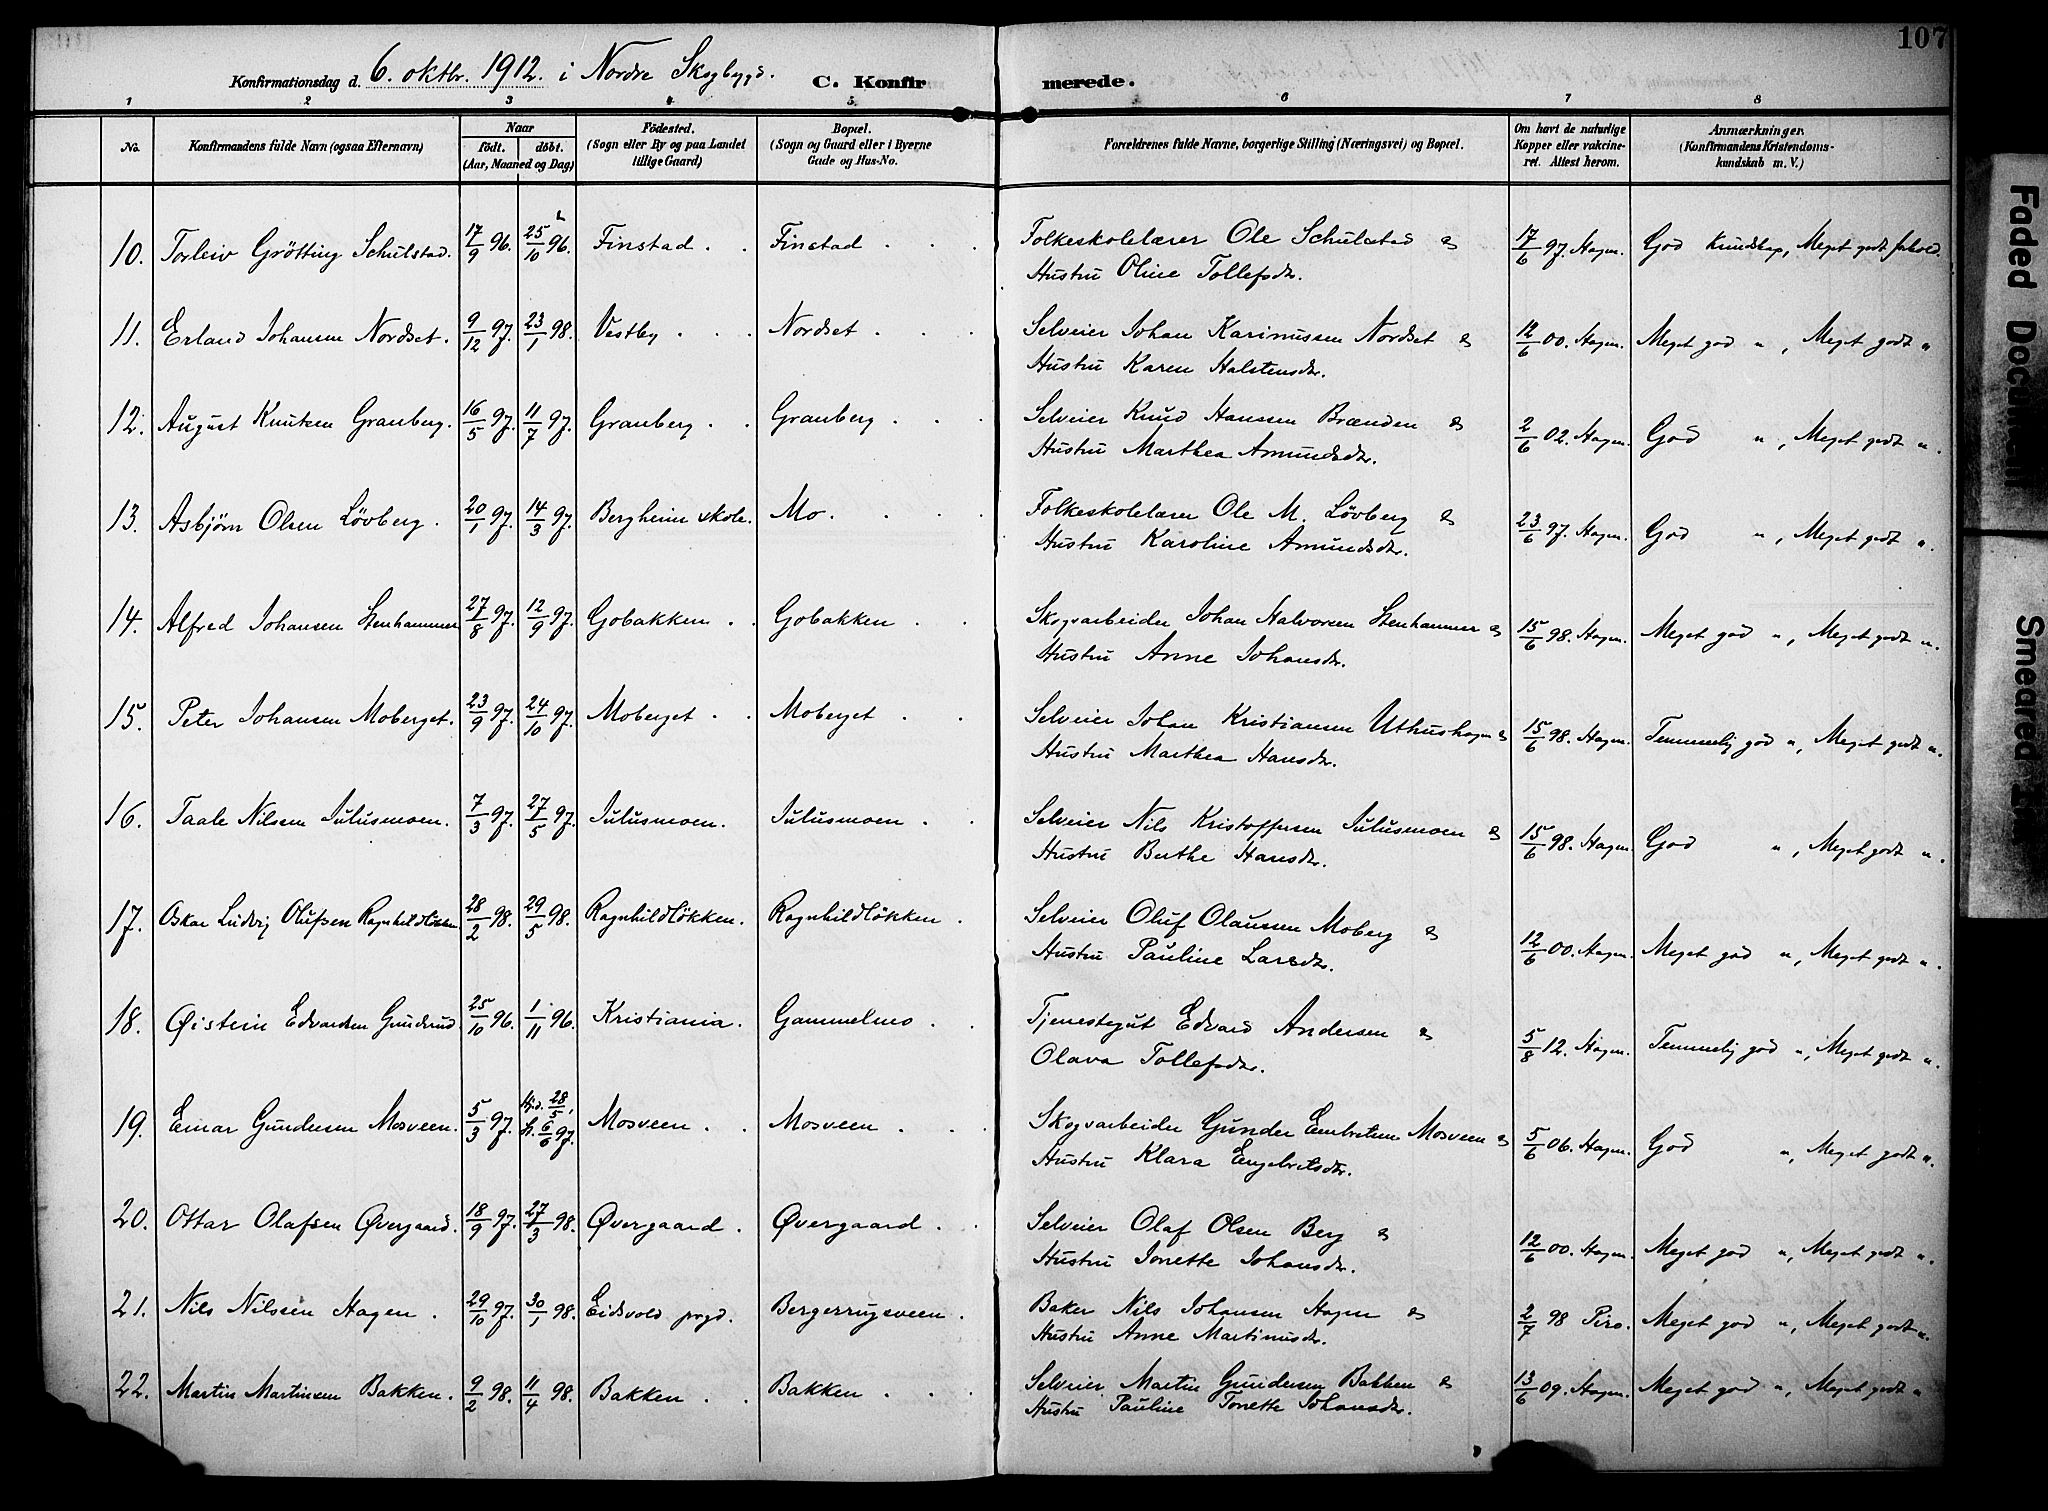 107
Konfirmationsdag d. 6. oktbr. 1912. i Nordre Skogbygd. C. Konfirmerede.
1 2 3 4 5 6 7 8
No. Konfirmandens fulde Navn (ogsaa Efternavn) Naar födt. döbt. (Aar, Maaned og Dag) Födested. (Sogn eller By og paa Landet tillige Gaard) Bopæl. (Sogn og Gaard eller i Byerne Gade og Hus-No. Forældrenes fulde Navne, borgerlige Stilling (Næringsvei) og Bopæl. Om havt de naturlige Kopper eller vakcineret. Attest herom. Anmærkninger. (Konfirmandens Kristendomskundskab m. V.)
10. Torleiv Grötting Schulstad. 17/9 96. 25/10 96. Finstad. Finstad Folkeskolelærer Ole Schulstad & 17/6 97. Hagen. God Kundskap, Meget godt forhold.
Hustru Oline Tollefsdtr.
11. Erland Johansen Nordset. 9/12 97. 23/1 98. Vestby Nordset Selveier Johan Karinussen Nordset & 12/6 00. Hagen. Meget god ", Meget godt "
Hustru Karen Halstensdtr.
12. August Knutsen Granberg. 16/5 97. 11/7 97. Granberg Granberg Selveier Knud Hanssen Brænden & 2/6 02. Hagen. God ", Meget godt ".
Hustru Marthea Amundsdtr.
13. Asbjörn Olsen Lövberg. 20/1 97. 14/3 97. Bergheim skole. Mo. Folkeskolelærer Ole M. Lövberg & 23/6 97. Hagen. God ", Meget godt ".
Hustru Karoline Amundsdtr.
14. Alfred Johansen Stenhammer 27/8 97. 12/9 97. Gobakken Gobakken Skogvarbeider Johan Halvorsen Stenhammer & 15/6 98. Hagen. Meget god ", Meget godt ".
Hustru Anne Johansdtr.
15. Peter Johansen Moberget. 23/9 97. 24/10 97. Moberget Moberget Selveier Johan Kristiansen Uthushagen & 15/6 98. Hagen. Temmelig god ", Meget godt ".
Hustru Marthea Hansdtr.
16. Taale Nilssen Julusmoen. 7/3 97. 27/5 97. Julusmoen. Julusmoen Selveier Nils Kristoffersen Julusmoen & 15/6 98. Hagen. God ", Meget godt ".
Hustru Berthe Hansdtr.
17. Oskar Ludvig Olufsen Ragnhildlökken 28/2 98. 29/5 98. Ragnhildlökken. Ragnhildlökken Selveier Oluf Olaussen Moberg & 12/6 00. Hagen. Meget god ", Meget godt ".
Hustru Pauline Larsdtr.
18. Øistein Edvardsen Gundrud 25/10 96. 1/11 96. Kristiania. Gammelmo Tjenestegut Edvard Andersen & 5/8 12. Hagen. Temmelig god ", Meget godt ".
Olava Tollefsdtr.
19. Einar Gundersen Mosveen. 5/3 97. Hjd. 28/5, K. 6/6 97. Mosveen Mosveen Skogvarbeider Gunder Embretsen Mosveen & 5/6 06. Hagen. God ", Meget godt ".
Hustru Klara Engebretsdtr.
20. Ottar Olafsen Øvergaard. 18/9 97. 27/3 98. Øvergaard. Øvergaard Selveier Olaf Olsen Berg & 12/6 00. Hagen. Meget god ", Meget godt ".
Hustru Jonette Johansdtr.
21. Nils Nilssen Hagen. 29/10 97. 30/1 98. Eidsvold prgd. Bergerrugsveen. Baker Nils Johansen Hagen & 2/7 98 Piro. Meget god ", Meget godt ".
Hustru Anne Martinusdtr.
22. Martin Martinsen Bakken. 9/2 98. 11/4 98. Bakken Bakken Selveier Martin Gundersen Bakken & 13/6 09. Hagen. Meget god ", Meget godt "
Hustru Pauline Tonette Johansdtr.
Faded Document
Smeared Ink